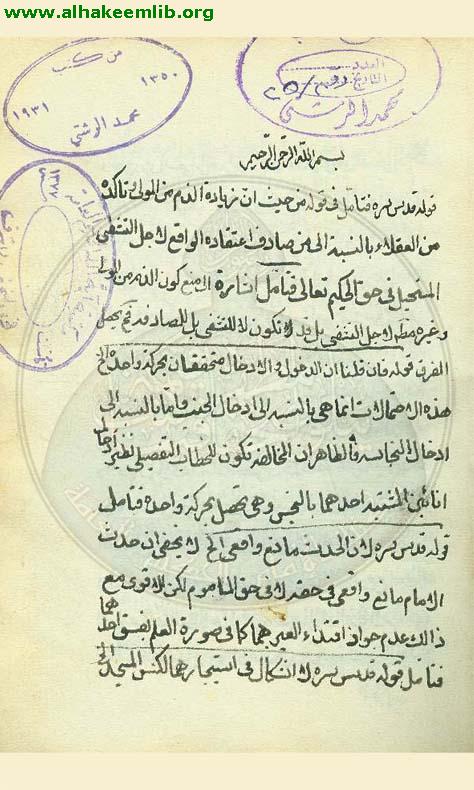 www.alhakeemlib.org
من كتب
١٣٥٠
١٩٣١
محمد الرشتي
العدد
التاريخ
محمد الرشتي
بسم الله الرحمن الرحيم
قوله قدس سره فتامل في قوله من حيث ان زيادة الذم من المولى وتاكده
من العقلاء بالنسبة الى من صادف اعتقاده الواقع لاجل التشفي
المستحيل في حق الحكيم تعالى فتامل اشارة الى منع كون الذم من المولى
وغيره مطلقا لاجل التشفي بل قد لا تكون لا للتشفي بل للمصادفة
الفرق قوله فان قلنا ان الدخول والادخال متحققان بحركة واحدة الخ
هذه الاحتمالات انما هي بالنسبة الى ادخال الجنب واما بالنسبة الى
ادخال النجاسة فالظاهر ان المخالفة تكون للخطاب التفصيلي نظير
انائين المشتبه احدهما بالنجس وهي تحصل بحركة واحدة فتامل
قوله قدس سره لان الحدث مانع واقعي الخ لا يخفى ان حدث
الامام مانع واقعي في حقه لا في حق الماموم لكن الاقوى مع
ذالك عدم جواز اقتداء الغير بهما كما في صورة العلم بفسق احدهما
فتامل قوله قدس سره لا اشكال في استيجارهما لكنس المسجد الخ